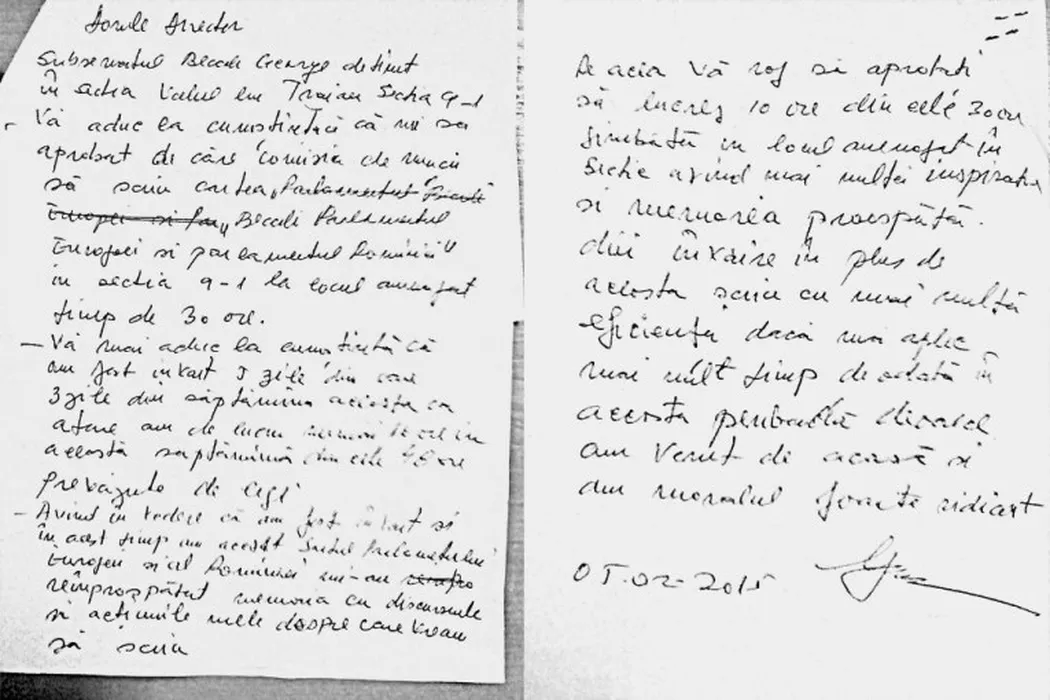 Domle Director
Subsemnatul Becali George detinut
în sectia Valul lui Traian Sectia 9-1
Vă aduc la cunostință că mi sa
aprobat de către comisia de muncă
să scriu cartea „Parlamentul
Europei si Par „Becali Parlamentul
Europei si parlamentul României"
în sectia 9-1 la locul amenajat
timp de 30 ore.
- Vă mai aduc la cunostință că
am fost învoit 5 zile din care
3 zile din săptămîna aceasta ca
atare am de lucru numai 10 ore în
această saptămînă din cele 48 ore
prevăzute de legi
- Avînd în vedere că am fost învoit si
în acest timp am accesat Saitul Parlamentului
Europei si al României mi-am
reîmprospătat memoria cu discursurile
si actiunile mele despre care vreau
să scriu
De aceia vă rog sa aprobati
să lucrez 10 ore din cele 30 ore
Simbătă in locul amenajat în
Sectie avînd mai multă inspiratie
si memoria proaspătă.
din învoire în plus de
aceasta scriu cu mai multă
eficientă dacă mai aplic
mai mult timp deodată în
această perioadă deoarece
am venit de acasă si
am moralul foarte ridicat
05-02-2015